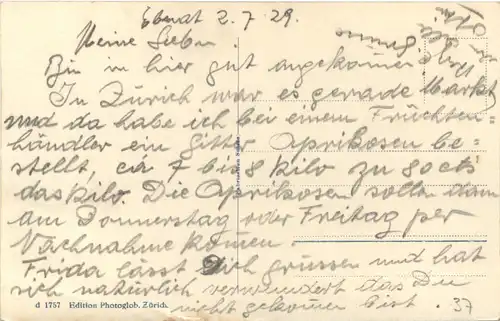 Ebnat 2.7.29.
Meine Lieben
Bin in hier gut angekommen
In Zürich war es gerade Markt
und da habe ich bei einem Früchten-
händler ein Gitter Aprikosen be-
stellt, cia 7 bis 8 kilo zu 80cts
das Kilo. Die Aprikosen solln dan
am Donnerstag oder Freitag per
Nachnahme komen.
Frida lässt Dich grüssen und hat
sich natürlich verwundert das Du
nicht gekomen bist.
Grüsse
d 1757 Edition Photoglob. Zürich.
37